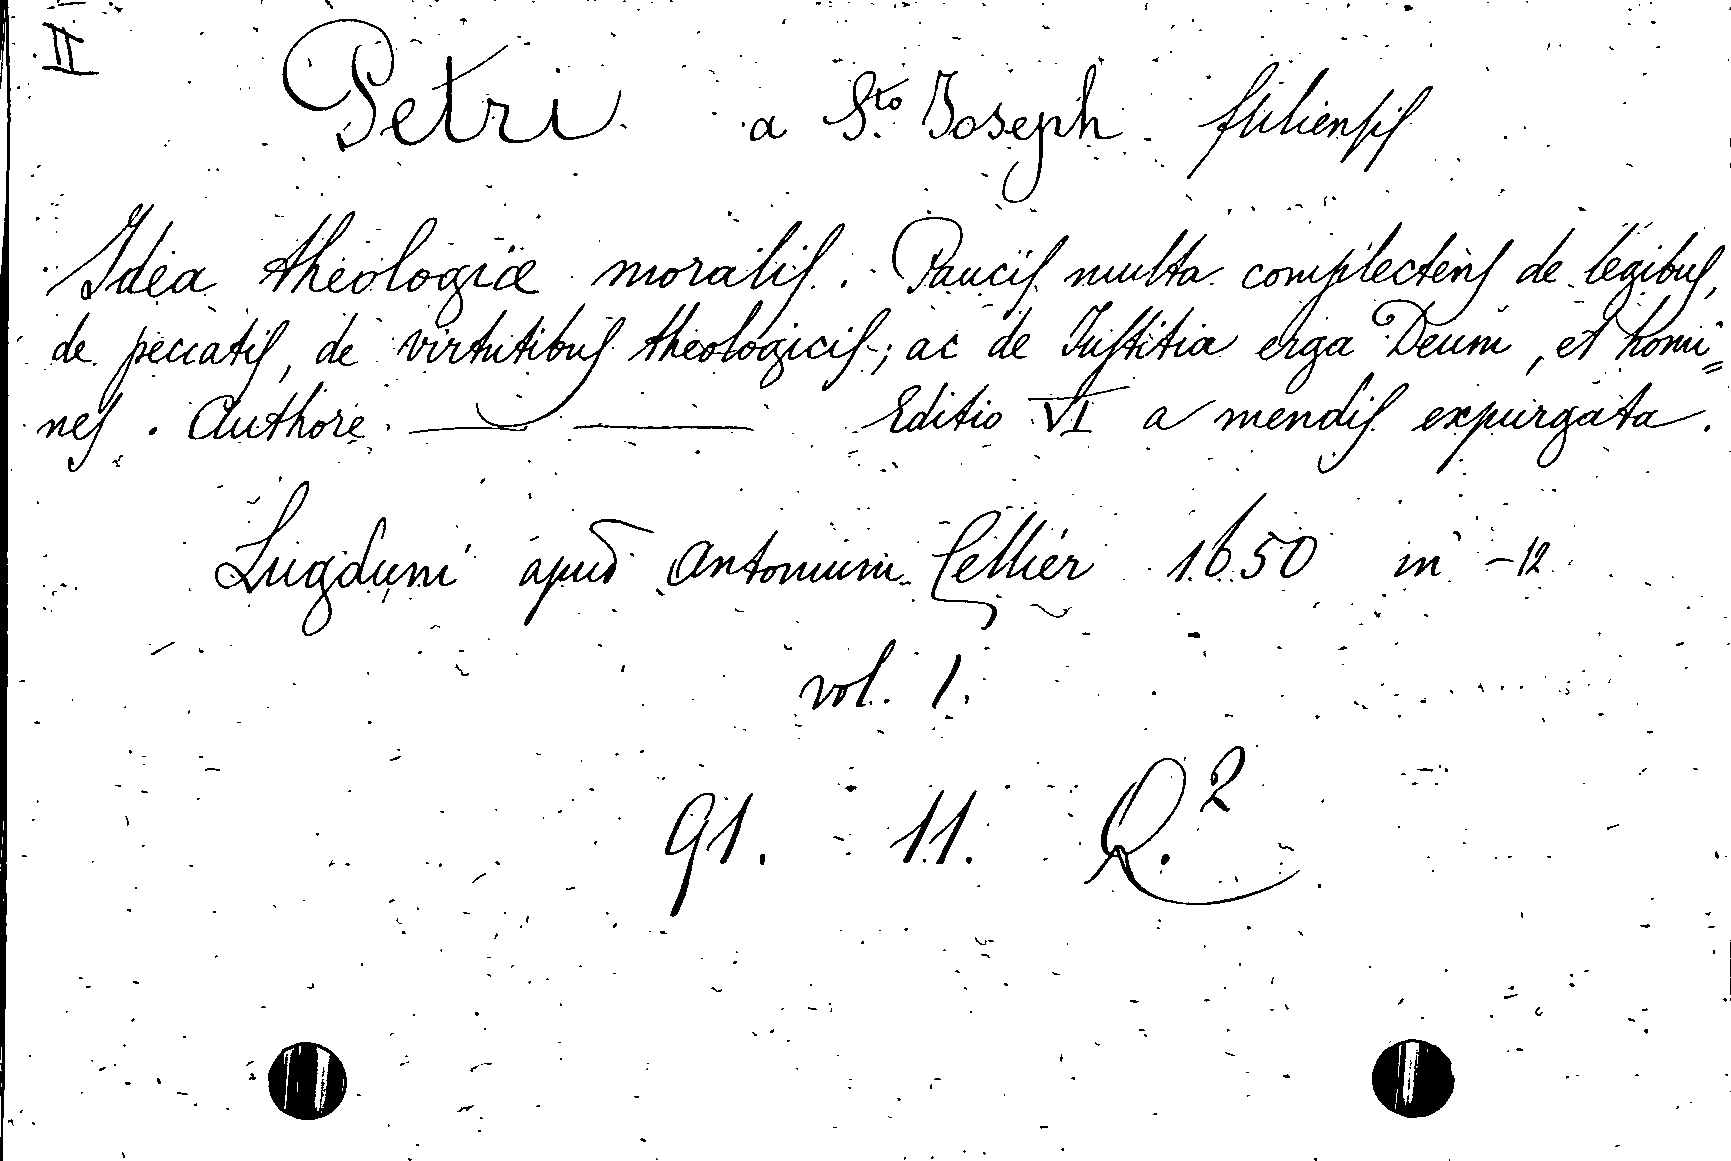 II
Petri a S.to Joseph fuliensis
Idea theologiæ moralis. Paucis multa complectens de legibus,
de peccatis, de virtutibus theologicis; ac de Justitia erga Deum, et homi=
nes. Authore ——— ——— Editio VI a mendis expurgata.
Lugduni apud Antonium Cellier 1650 in-12
vol. 1.
91. 11. Q.2